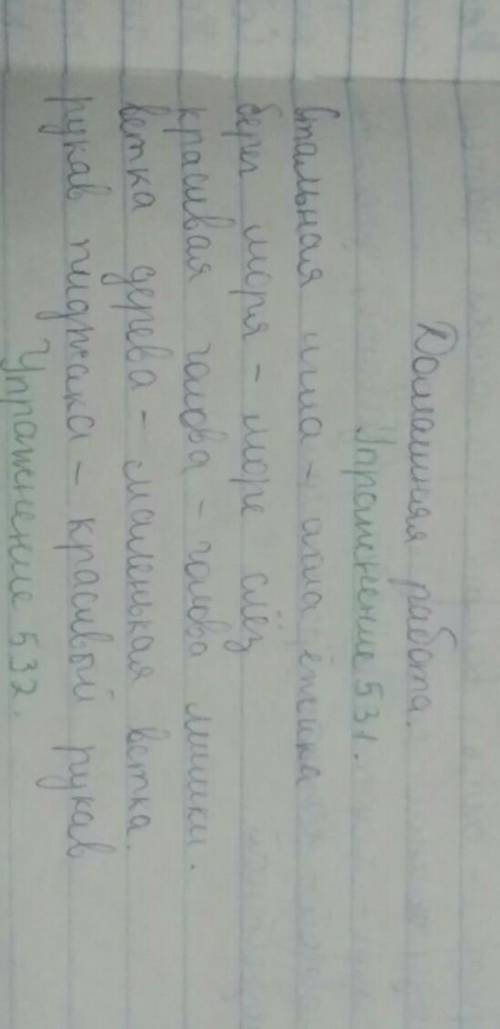 Домашняя работа.
Упражнение 531.
Стальная игла - игла ёжика
берег моря - море слёз
красивая голова - голова мишки.
ветка дерева - маленькая ветка.
рукав пиджака - красивый рукав
Упражнение 532.